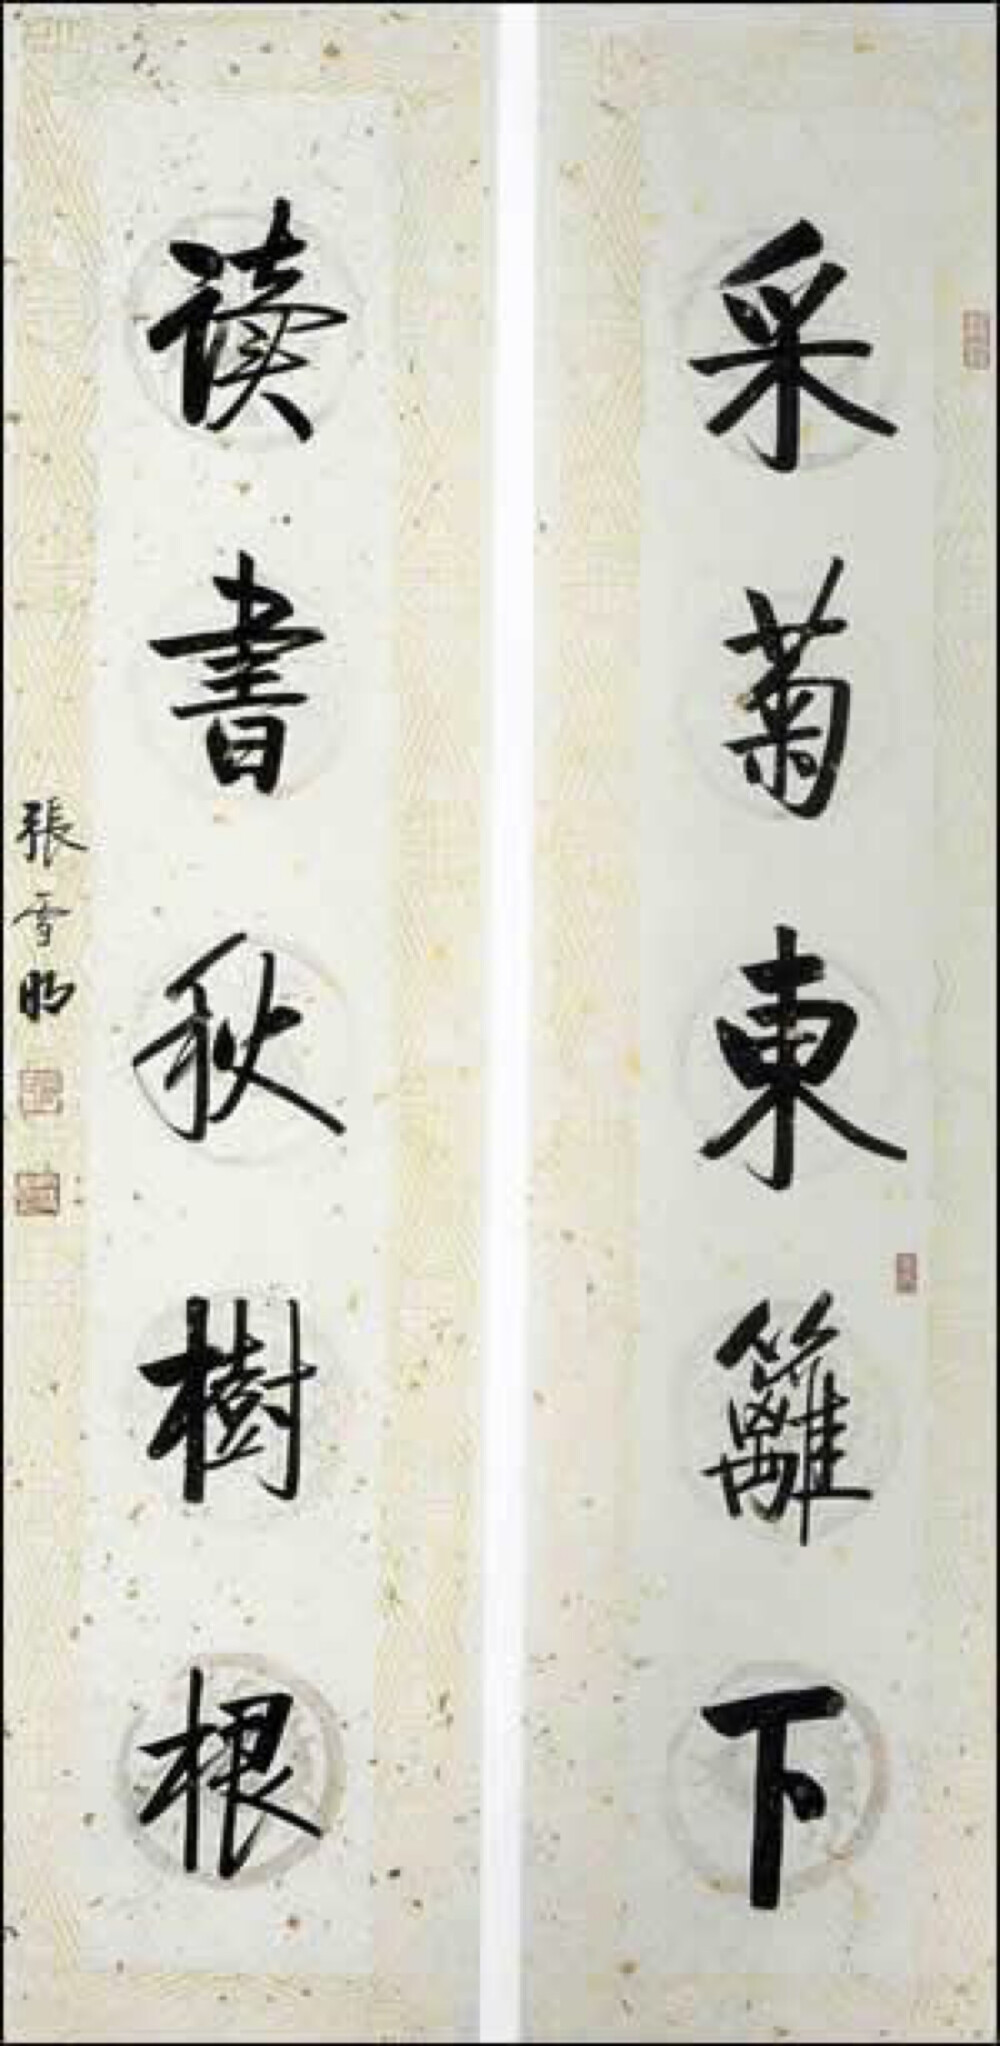 采菊東籬下
读書秋樹根
張雪明